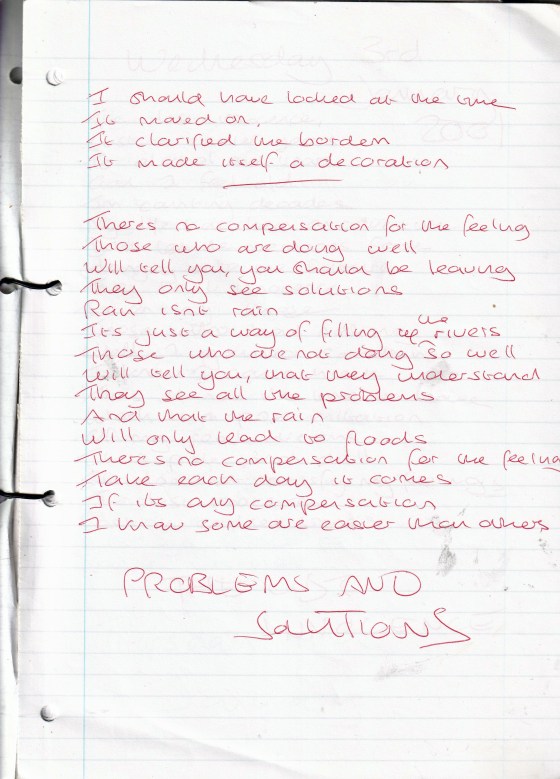 I should have looked at the time
It moved on,
It clarified the
It made itself a decoration
Theres no compensation for the feeling
Those who are doing well
Will tell you, you should be leaving
They only see solutions
Rain isnt rain
Its just a way of filling up the rivers
Those who are not doing so well
Will tell you, that they understand
They see all the problems
And that the rain
Will only lead to floods
Theres no compensation for the feeling
Take each day it comes
If its any compensation
I know some are easier than others
PROBLEMS AND
SOLUTIONS